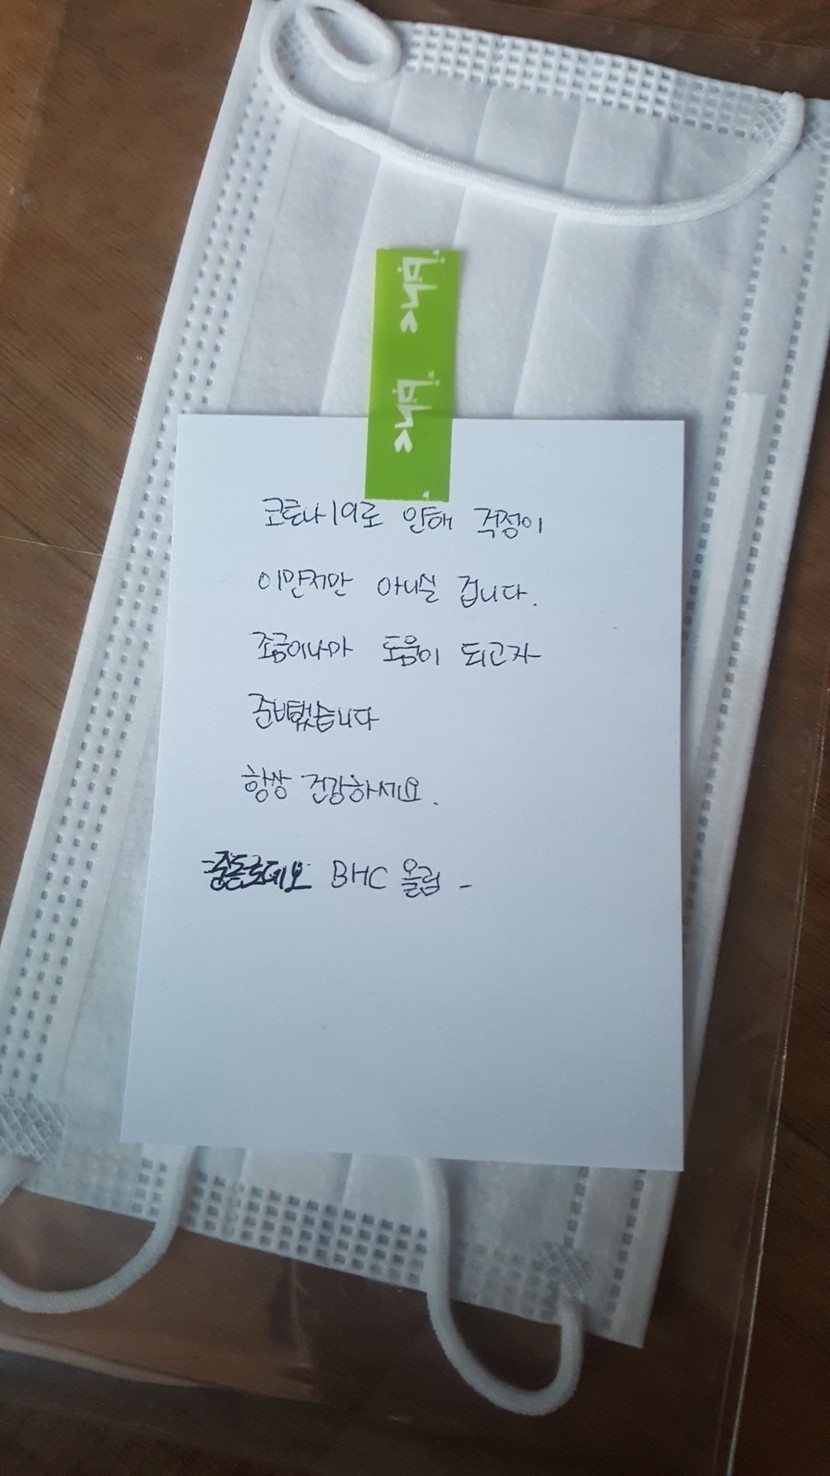 bhc
bhc
코로나19로 인해 걱정이
이만저만 아니실 겁니다.
조금이나마 도움이 되고자
준비했습니다
항상 건강하세요.
중동로데오 BHC 올림 -